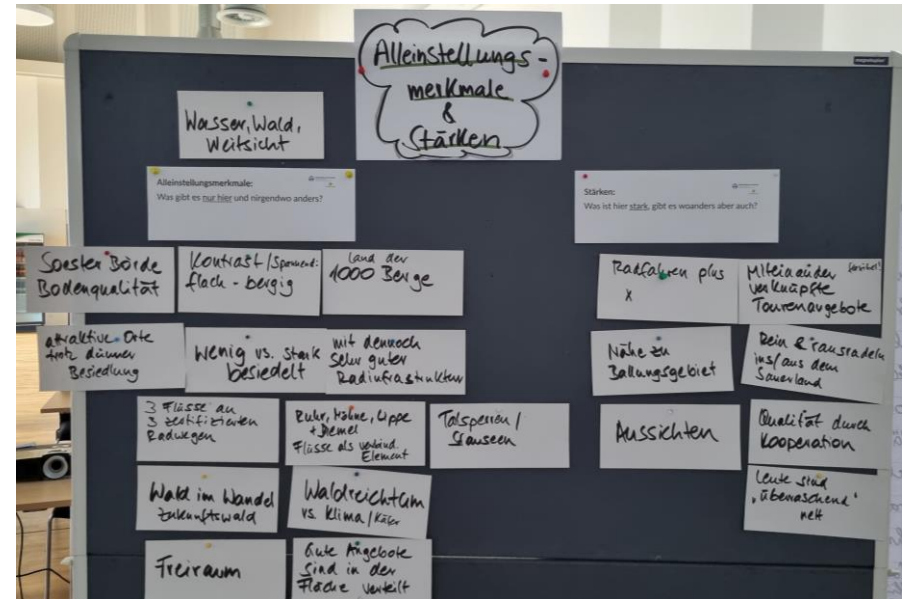 Alleinstellungs-
merkmale
&
Stärken
Wasser, Wald,
Weitsicht
Alleinstellungsmerkmale:
Was gibt es nur hier und nirgendwo anders?
Soester Börde
Bodenqualität
Kontrast/Spannend:
flach - bergig
Land der
1000 Berge
attraktive Orte
trotz dünner
Besiedlung
Wenig vs. stark
besiedelt
mit dennoch
sehr guter
Radinfrastruktur
3 Flüsse an
3 zertifizierten
Radwegen
Ruhr, Möhne, Lippe
+ Diemel
Flüsse als verbind.
Element
Talsperren/
Stauseen
Wald im Wandel
Zukunftswald
Waldreichtum
vs. Klima/Käfer
Freiraum
Gute Angebote
sind in der
Fläche verteilt
Stärken:
Was ist hier stark, gibt es woanders aber auch?
Radfahren plus
x
Miteinander
verknüpfte
Tourenangebote
Nähe zu
Ballungsgebiet
Rein & rausradeln
ins/aus dem
Sauerland
Aussichten
Qualität durch
Kooperation
Leute sind
"überraschend"
nett